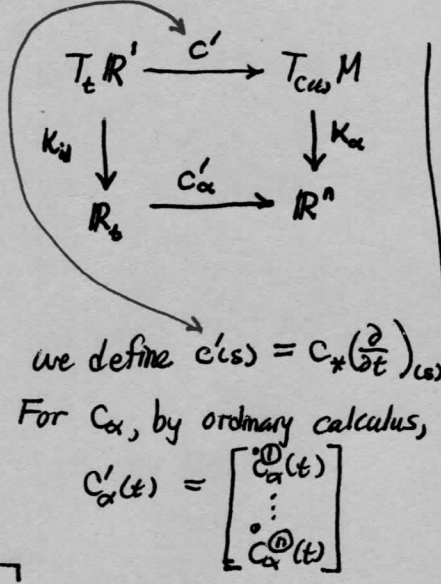 C'
T_t ℝ' ⟶ T_{C(t)} M
K_{id} ↓ ↓ K_α
C'_α
ℝ_t ⟶ ℝ^n
we define c'(s) = C_*(∂/∂t)_{(s)}
For C_α, by ordinary calculus,
C'_α(t) = [ċ_α^①(t)
⋮
ċ_α^ⓝ(t)]